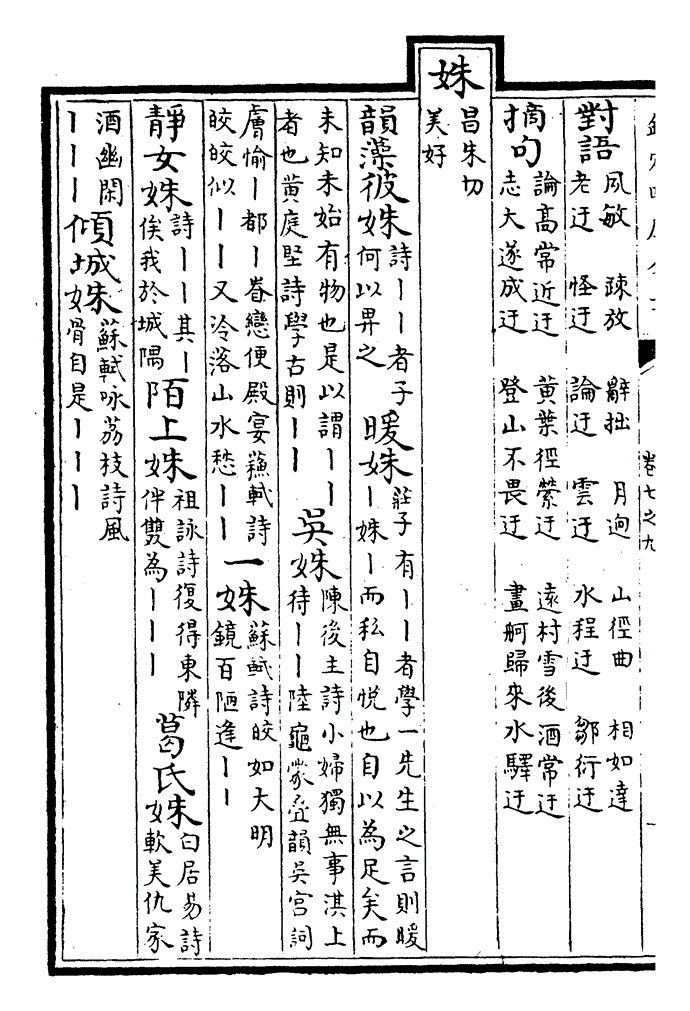 卷七之九
對語
夙敏 疎放 辭拙 月逈 山徑曲 相如達
老迂 怪迂 論迂 雲迂 水程迂 鄒衍迂
摘句
論高常近迂 黃葉徑縈迂 遠村雪後酒常迂
志大遂成迂 登山不畏迂 畫舸歸來水驛迂
姝
昌朱切
美好
韻藻彼姝
詩丨丨者子
何以畀之
暖姝
莊子有丨丨者學一先生之言則暖
丨姝丨而私自悦也自以為足矣而
未知未始有物也是以謂丨丨
者也黃庭堅詩學古則丨丨
吳姝
陳後主詩小婦獨無事淇上
待丨丨陸龜蒙疊韻吳宫詞
膚愉丨都丨眷戀便殿宴蘇軾詩
皎皎似丨丨又冷落山水愁丨丨
一姝
蘇軾詩皎如大明
鏡百陋逢丨丨
靜女姝
詩丨丨其丨
俟我於城隅
陌上姝
祖詠詩復得東隣
伴雙為丨丨丨
葛氏姝
白居易詩
軟美仇家
酒幽閑
丨丨丨
傾城姝
蘇軾咏荔枝詩風
骨自是丨丨丨